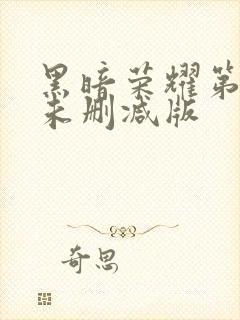 黑暗荣耀第
未删减版
奇思